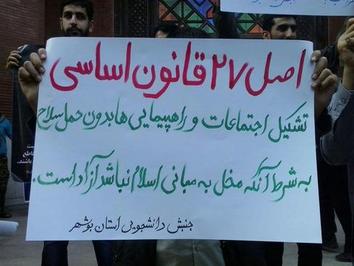 اصل ۲۷ قانون اساسی
تشکیل اجتماعات و راهپیمایی ها بدون حمل سلاح
به شرط آنکه مخل به مبانی اسلام نباشد آزاد است.
جنبش دانشجویی استان بوشهر